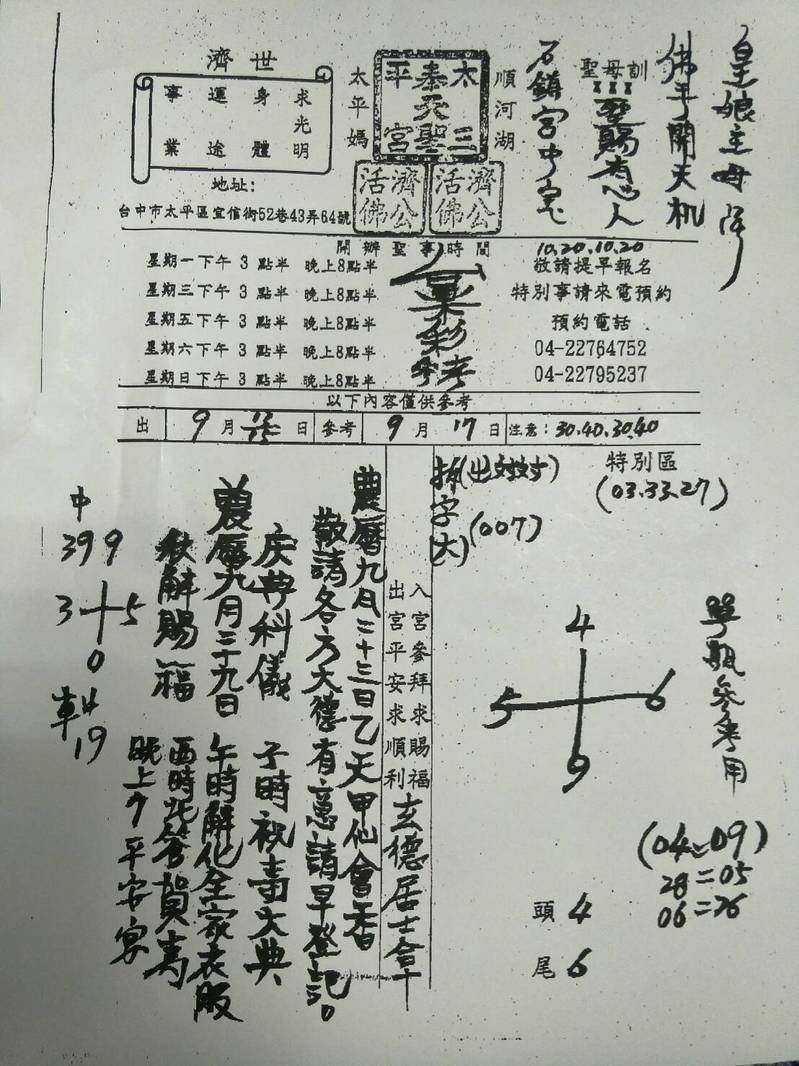 皇娘主母降
佛手開天机
聖母訓
恩賜有心人
石鎮宮中寶
順河湖
太三
奉天聖
平宮
太平媽
濟公活佛
濟公活佛
濟世
求光明
身體
運途
事業
地址:
台中市太平區宜信街52巷43弄64號
開辦聖事時間
星期一下午3點半 晚上8點半
星期三下午3點半 晚上8點半
星期五下午3點半 晚上8點半
星期六下午3點半 晚上8點半
星期日下午3點半 晚上8點半
10.20.10.20
敬請提早報名
特別事請來電預約
預約電話
04-22764752
04-22795237
今
彩
以下內容僅供參考
出 9月 日 參考 9月17日 注意:30.40.30.40
特別區
(03.33.27)
(007)
拆字(大)
單瓶參考用
4
5 6
9
(04=09)
28=05
06=26
頭 4
尾 6
入宮參拜求賜福
出宮平安求順利
玄德居士
農曆九月二十三日乙天甲仙會香
敬請各方大德有意請早登記。
慶典科儀 子時祝壽大典
農曆九月二十九日 午時解化全家衣服
解賜福 酉時 答賀壽
晚上 平安宴
中
399
3 5
0
19